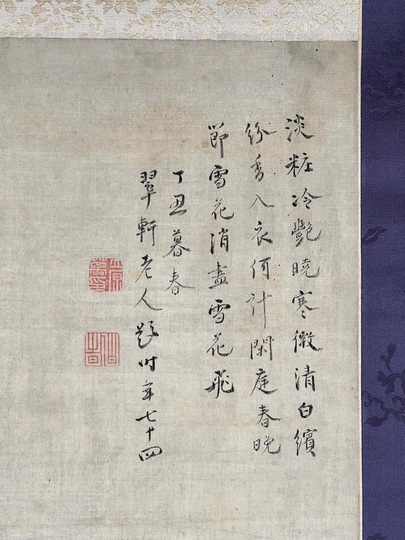 淡粧冷艷曉寒微清白繽
紛香入衣何計閑庭春晚
節雪花消盡雪花飛
丁丑暮春
翠軒老人題時年七十四